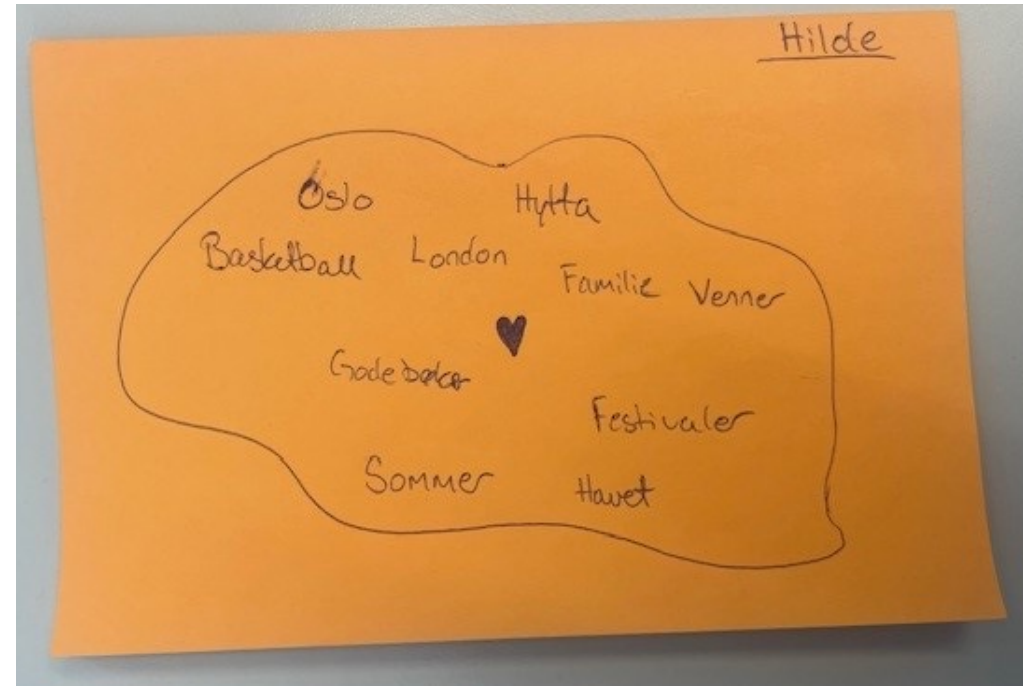 Hilde
Oslo Hytta
Basketball London
Familie Venner
Gode bøker
Festivaler
Sommer Havet